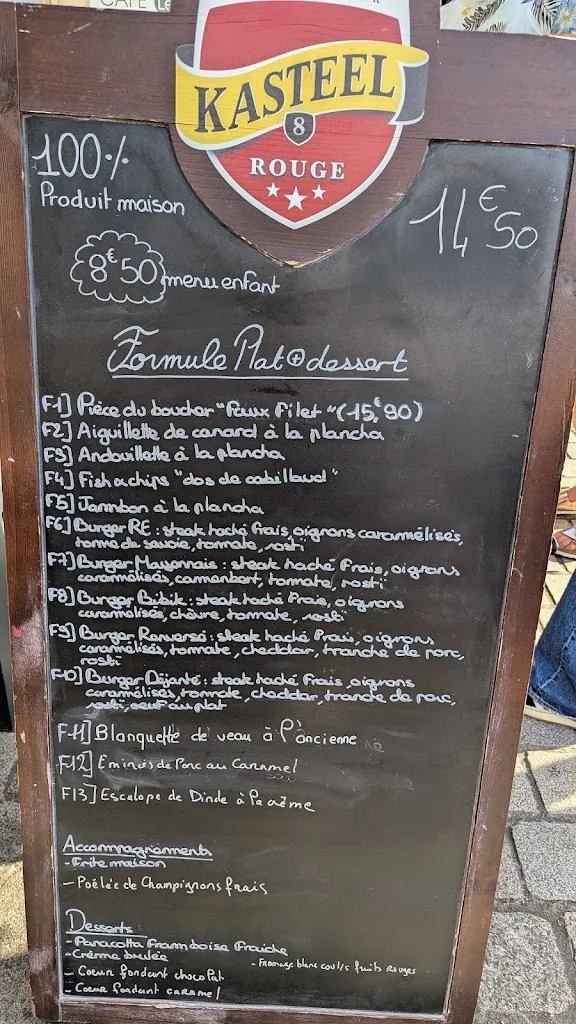 CAFÉ
KASTEEL
8
ROUGE
100%
Produit maison
14€50
8€50 menu enfant
Formule Plat + dessert
F1] Pièce du boucher "Faux Filet" (15€90)
F2] Aiguillette de canard à la plancha
F3] Andouillette à la plancha
F4] Fish & chips "dos de cabillaud"
F5] Jambon à la plancha
F6] Burger RE : steak haché frais, oignons caramélisés,
tomme de savoie, tomate, rosti
F7] Burger Mayennais : steak haché frais, oignons
caramélisés, camembert, tomate, rosti
F8] Burger Bibik : steak haché frais, oignons
caramélisés, chèvre, tomate, rosti
F9] Burger Renversé : steak haché frais, oignons
caramélisés, tomate, cheddar, tranche de porc,
rosti
F10] Burger Déjanté : steak haché frais, oignons
caramélisés, tomate, cheddar, tranche de porc,
rosti, oeuf au plat
F11] Blanquette de veau à l'ancienne
F12] Emincés de Porc au Caramel
F13] Escalope de Dinde à la crème
Accompagnements
- Frite maison
- Poêlée de Champignons frais
Desserts
- Panacotta Framboise Fraiche
- Crème brulée
- Fromage blanc coulis fruits Rouges
- Coeur fondant chocolat
- Coeur fondant caramel